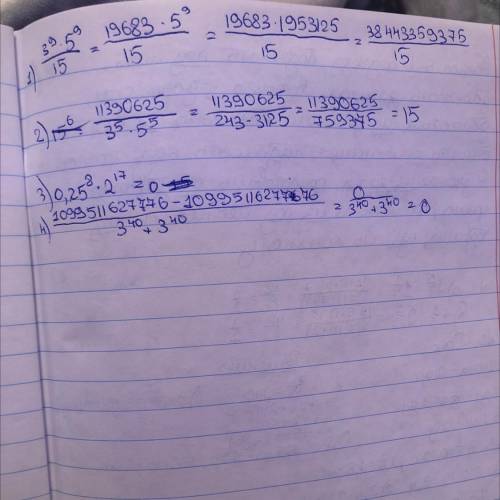 1) 3⁹·5⁹/15 = 19683·5⁹/15 = 19683·1953125/15 = 38443359375/15
2) 11390625/3⁵·5⁵ = 11390625/243·3125 = 11390625/759375 = 15
3) 0,25⁸·2¹⁷ = 0
4) 1099511627776 - 1099511627776/3⁴⁰+3⁴⁰ = 0/3⁴⁰+3⁴⁰ = 0